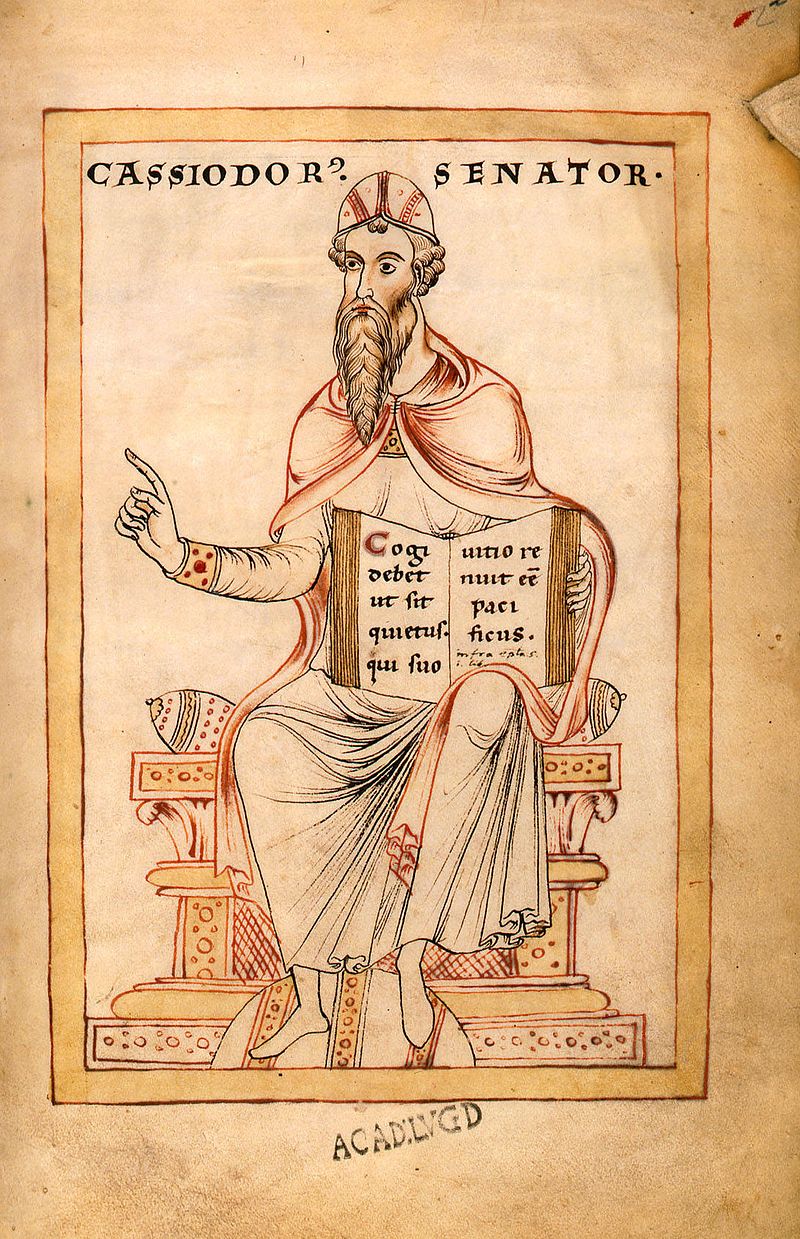 CASSIODORꝰ. SENATOR.
Cogi
debet
ut sit
quietus.
qui suo
uitio re
nuit eē
paci
ficus.
infra epla 5.
i. lib
ACAD. LVGD